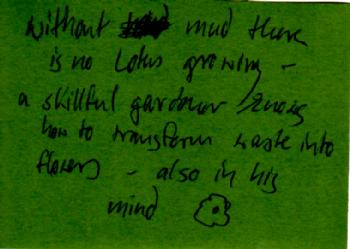 without mud there
is no Lotus growing -
a skillful gardener knows
how to transform waste into
flowers - also in his
mind